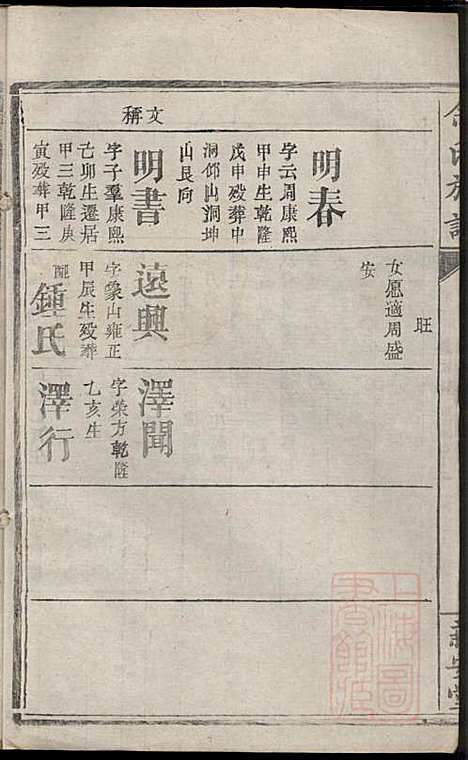 文稱
明春
字云周康熙
甲申生乾隆
戊申殁葬中
洞邻山洞坤
山艮向
明書
字子羣康熙
己卯生遷居
甲三乾隆庚
寅殁葬甲三
旺
女愿適周盛
安
遠興
字象山雍正
甲辰生殁葬
配鍾氏
澤聞
字榮方乾隆
乙亥生
澤行
上海圖
書館藏